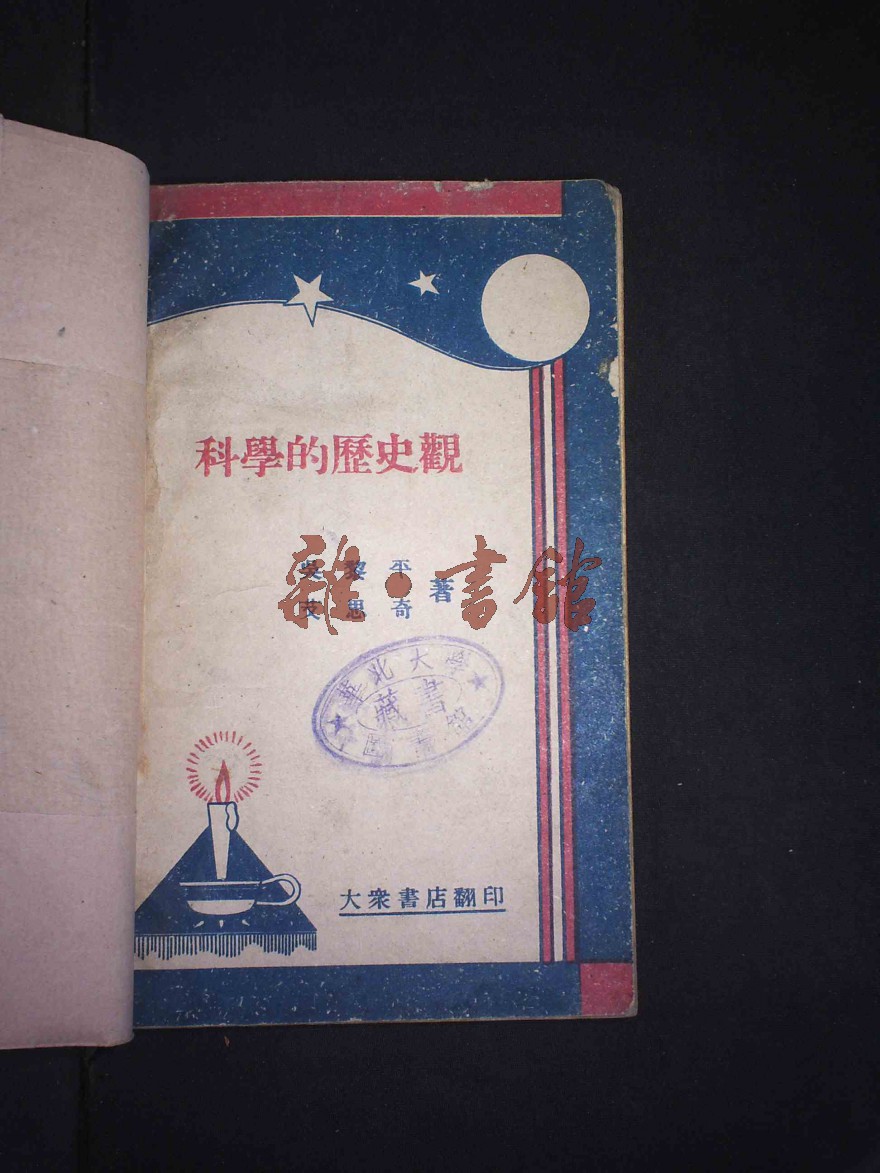 科學的歷史觀
吳黎平
艾思奇
著
雜·書館
華北大學
藏書
圖書館
大衆書店翻印